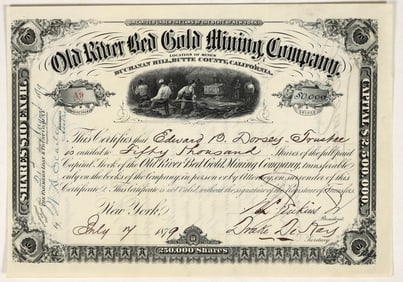 Old River Bed Gold Mining Company.
LOCATION OF MINES
BUCHANAN HILL, BUTTE COUNTY, CALIFORNIA.
A9
50,000
SHARES $10 EACH.
CAPITAL $2,500,000.
This Certifies that Edward B. Dorsey, Trustee
is entitled to Fifty Thousand Shares of the full paid
Capital Stock of the Old River Bed Gold Mining Company, transferable
only on the books of the Company, in person or by Attorney, on surrender of this
Certificate. This Certificate is not valid without the signature of the Registrar of transfers.
New York, July 7 1879
President
Drake De Kay
Secretary
250,000 Shares